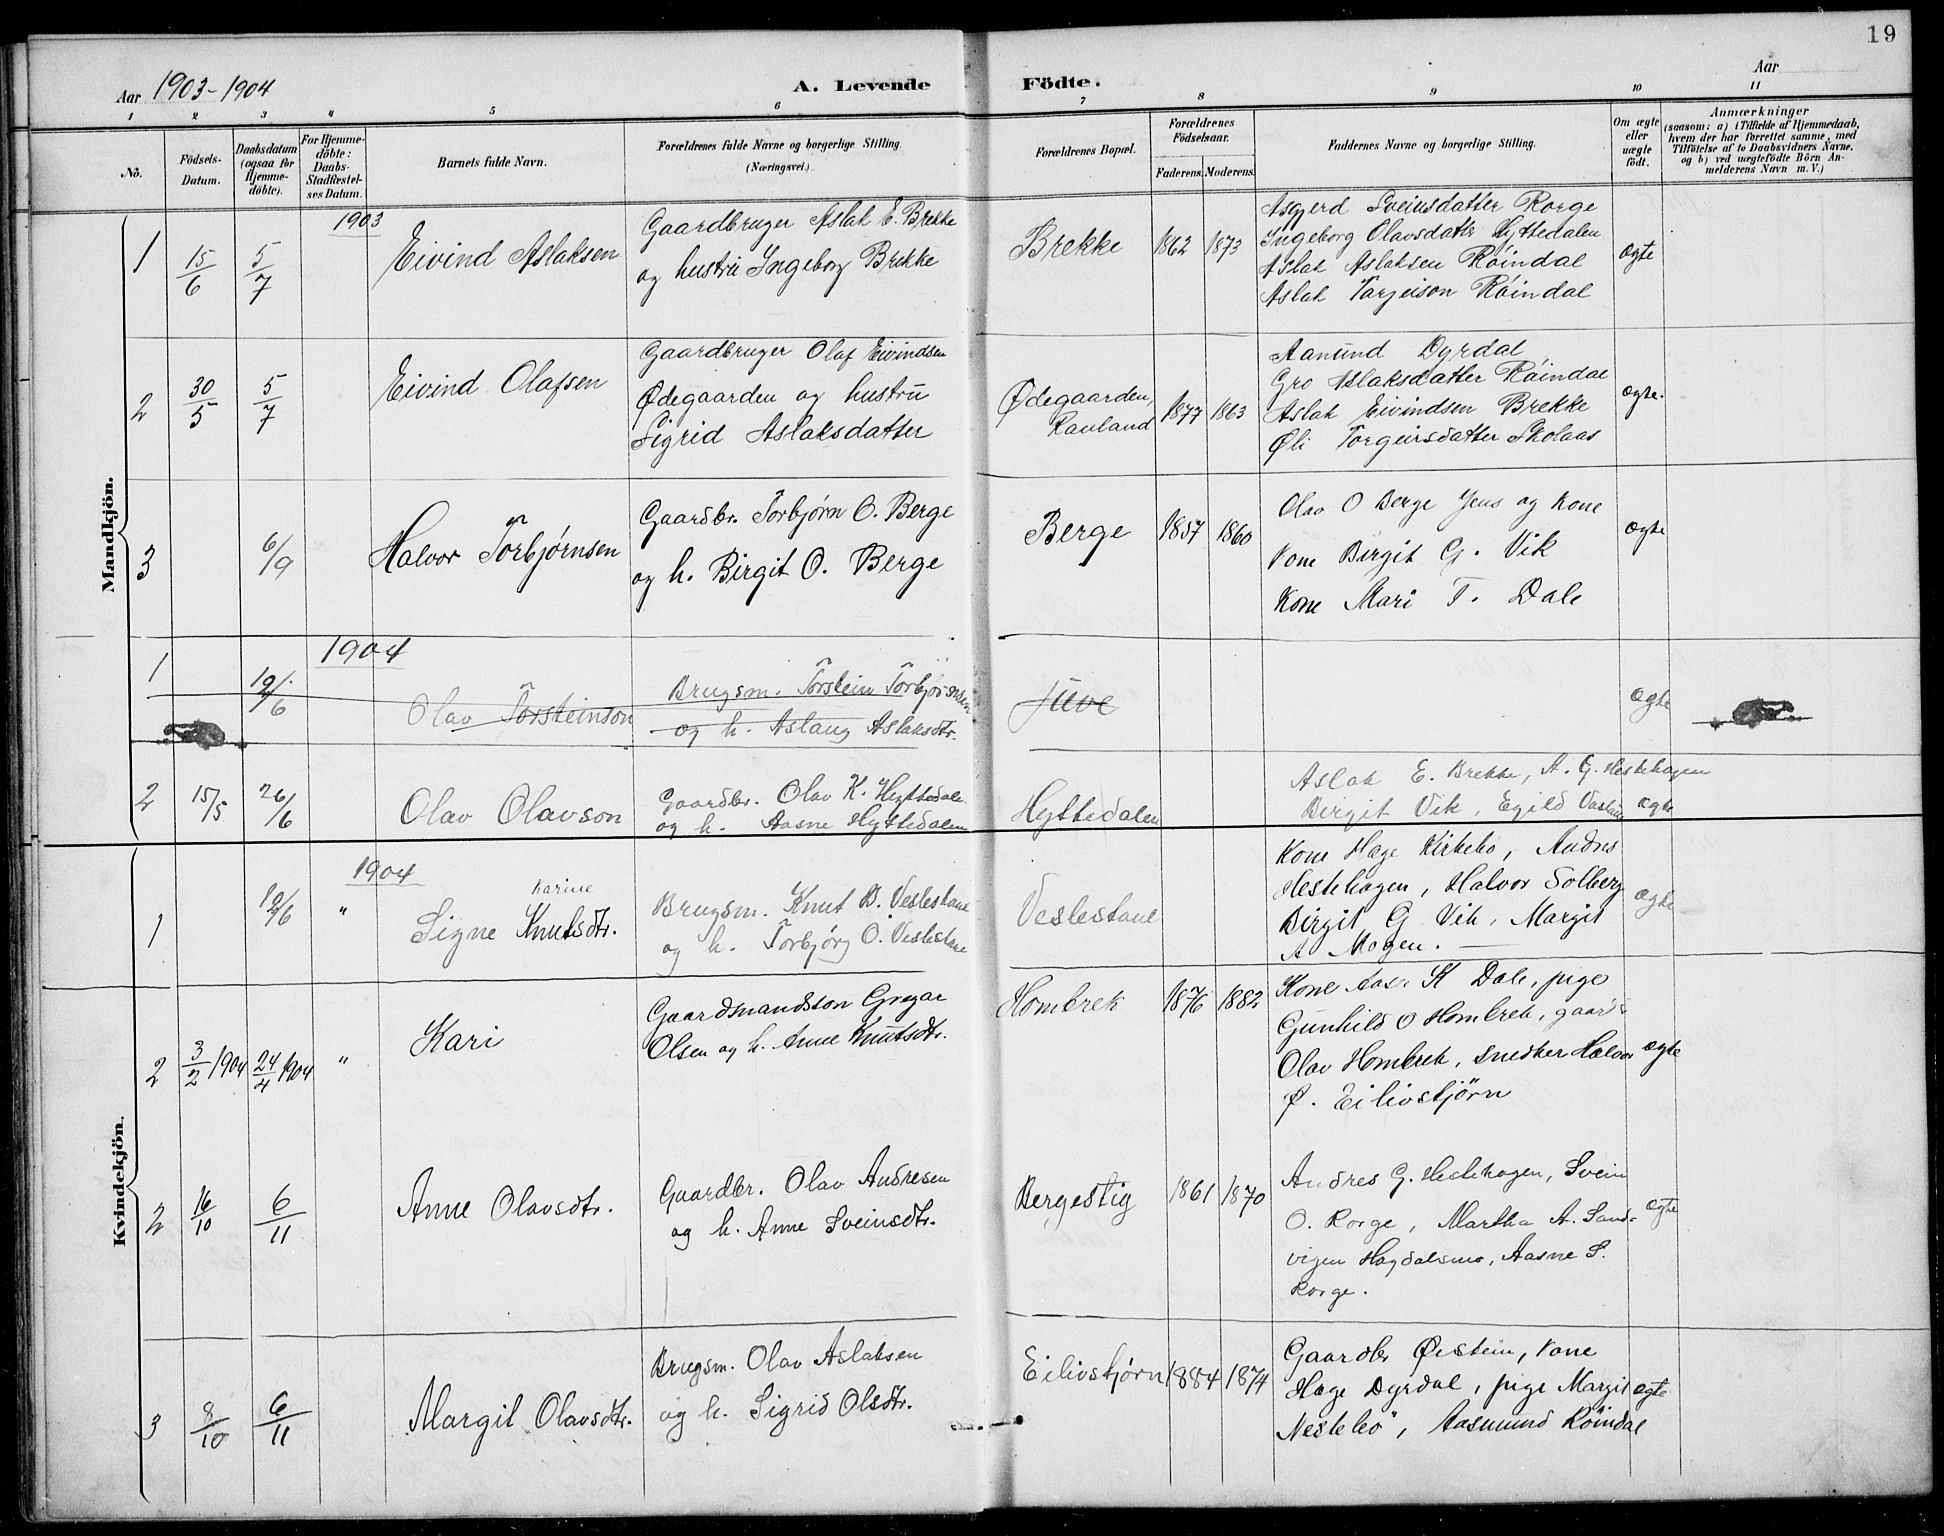 19
Aar 1903-1904
A. Levende Födte.
Aar
1 2 3 4 5 6 7 8 9 10 11
No.
Födsels-Datum.
Daabsdatum (ogsaa for Hjemme-döbte).
For Hjemme-döbte: Daabs-Stadfæstel-ses Datum.
Barnets fulde Navn.
Forældrenes fulde Navne og borgerlige Stilling.
(Næringsvei.)
Forældrenes Bopæl.
Forældrenes Födselsaar.
Faderens. Moderens.
Faddernes Navne og borgerlige Stilling.
Om ægte eller uægte födt.
Anmærkninger
(saasom: a) i Tilfælde af Hjemmedaab,
hvem der har forrettet samme, med
Tilföielse af to Daabsvidners Navne,
og b) ved uægtefödte Börn An-
melderens Navn m. V.)
Mandkjön.
1903
1 15/6 5/7 Eivind Aslaksen
Gaardbruger Aslak E. Brekke
og hustru Ingeborg Brekke
Brekke 1862 1873
Asgjerd Sveinsdatter Rorge
Ingeborg Olavsdatter Hyttedalen
Aslak Aslaksen Röindal
Aslak Torjeison Röindal
ægte
2 30/5 5/7 Eivind Olafsen
Gaardbruger Olaf Eivindsen
Ødegaarden og hustru
Sigrid Aslaksdatter
Ødegaarden, Rauland 1877 1863
Aanund Dyrdal
Gro Aslaksdatter Röindal
Aslak Eivindsen Brekke
Øli Torgeirsdatter Skolaas
ægte.
3 6/9 Halvor Torbjørnsen
Gaardbr. Torbjørn O. Berge
og h. Birgit O. Berge
Berge 1857 1860
Olav O Berge Jens og Kone
Kone Birgit G. Vik
Kone Mari T. Dale
ægte
1904
1 19/6 Olav Torsteinson
Brugsm. Torstein Torbjørnsen
og h. Aslaug Aslaksdtr.
Juve
ægte
2 15/5 26/6 Olav Olavson
Gaardbr. Olav K. Hyttedalen
og h. Aasne Hyttedalen
Hyttedalen
Aslak E. Brekke, A. G. Hestehagen
Bergit Vik, Egild
ægte
Kvindekjön.
1904
1 19/6 " Signe Karine Knutsdtr.
Brugsm. Knut B. Veslestaue
og h. Torbjørg O. Veslestaue
Veslestaue
Kone Hæge Kirkebö, Andres
Hestehagen, Halvor Solberg
Birgit G Vik, Margit
A Mogen.
ægte
2 3/2 1904 24/4 1904 " Kari
Gaardmandssön Gregar
Olsen og h. Anne Knutsdtr.
Hombrek 1876 1882
Kone Aase K Dale, pige
Gunhild O Hombrek, gaardbr
Olav Hombrek, snedker Halvor
Ø. Eilivstjörn
ægte
2 16/10 6/11 Anne Olavsdtr.
Gaardbr. Olav Andresen
og h. Anne Sveinsdtr.
Bergestig 1861 1870
Andres G. Hestehagen, Svein
O. Rorge, Martha A. Sand-
vigen Hagdalsmo, Aasne S.
Rorge.
ægte
3 8/10 6/11 Margit Olavsdtr.
Brugsm. Olav Aslaksen
og h. Sigrid Olsdtr.
Eilivstjørn 1884 1874
Gaardbr Øistein, Kone
Hæge Dyrdal, pige Margit
Nestebö, Aasmund Röindal
ægte